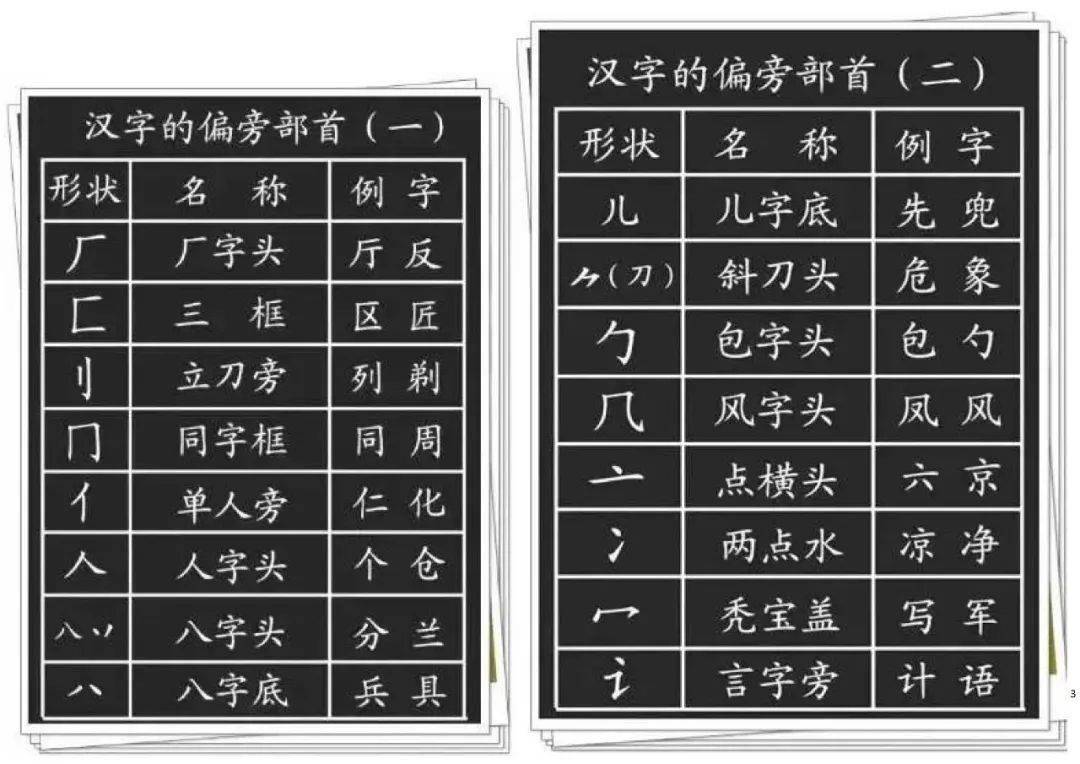 汉字的偏旁部首（一）
形状 名称 例字
厂 厂字头 厅 反
匚 三框 区 匠
刂 立刀旁 列 剃
冂 同字框 同 周
亻 单人旁 仁 化
人 人字头 个 仓
八丷 八字头 分 兰
八 八字底 兵 具
汉字的偏旁部首（二）
形状 名称 例字
儿 儿字底 先 兜
⺈（刀） 斜刀头 危 象
勹 包字头 包 勺
几 风字头 凤 风
亠 点横头 六 京
冫 两点水 凉 净
冖 秃宝盖 写 军
讠 言字旁 计 语
3